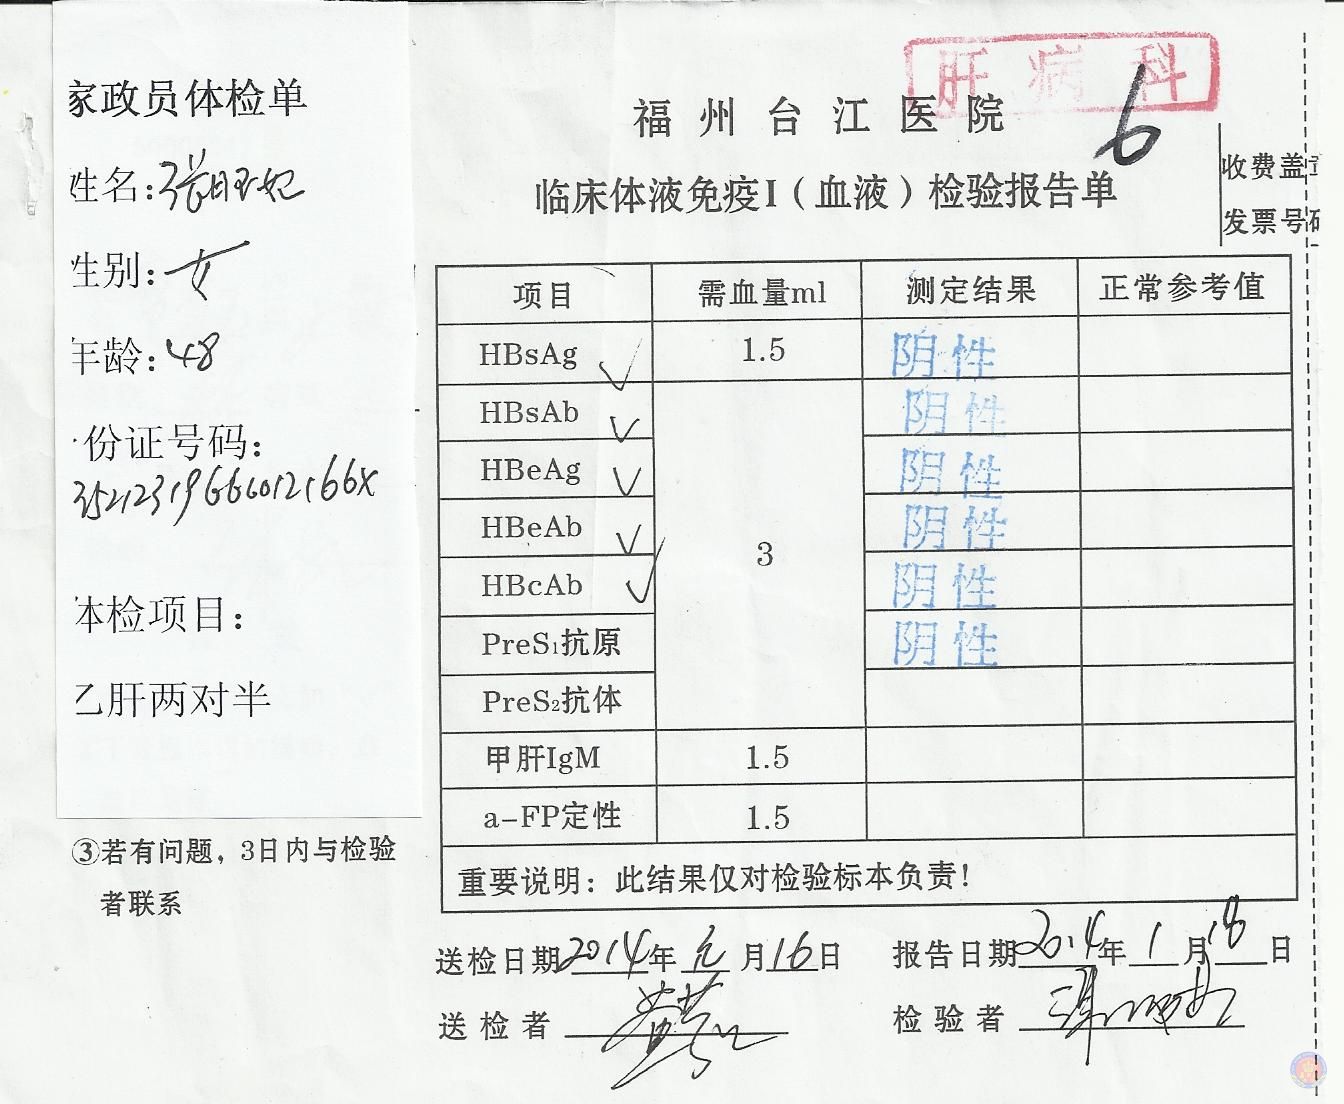 肝病科
福州台江医院
6
临床体液免疫I（血液）检验报告单
收费盖
发票号码
家政员体检单
姓名:张旺妃
性别:女
年龄:48
份证号码:
3521231966012166X
体检项目:
乙肝两对半
③若有问题，3日内与检验
者联系
项目 需血量ml 测定结果 正常参考值
HBsAg ✓ 1.5 阴性
HBsAb ✓ 阴性
HBeAg ✓ 阴性
HBeAb ✓ 3 阴性
HBcAb ✓ 阴性
PreS₁抗原 阴性
PreS₂抗体
甲肝IgM 1.5
a-FP定性 1.5
重要说明：此结果仅对检验标本负责!
送检日期2014年元月16日 报告日期2014年1月18日
送检者 检验者